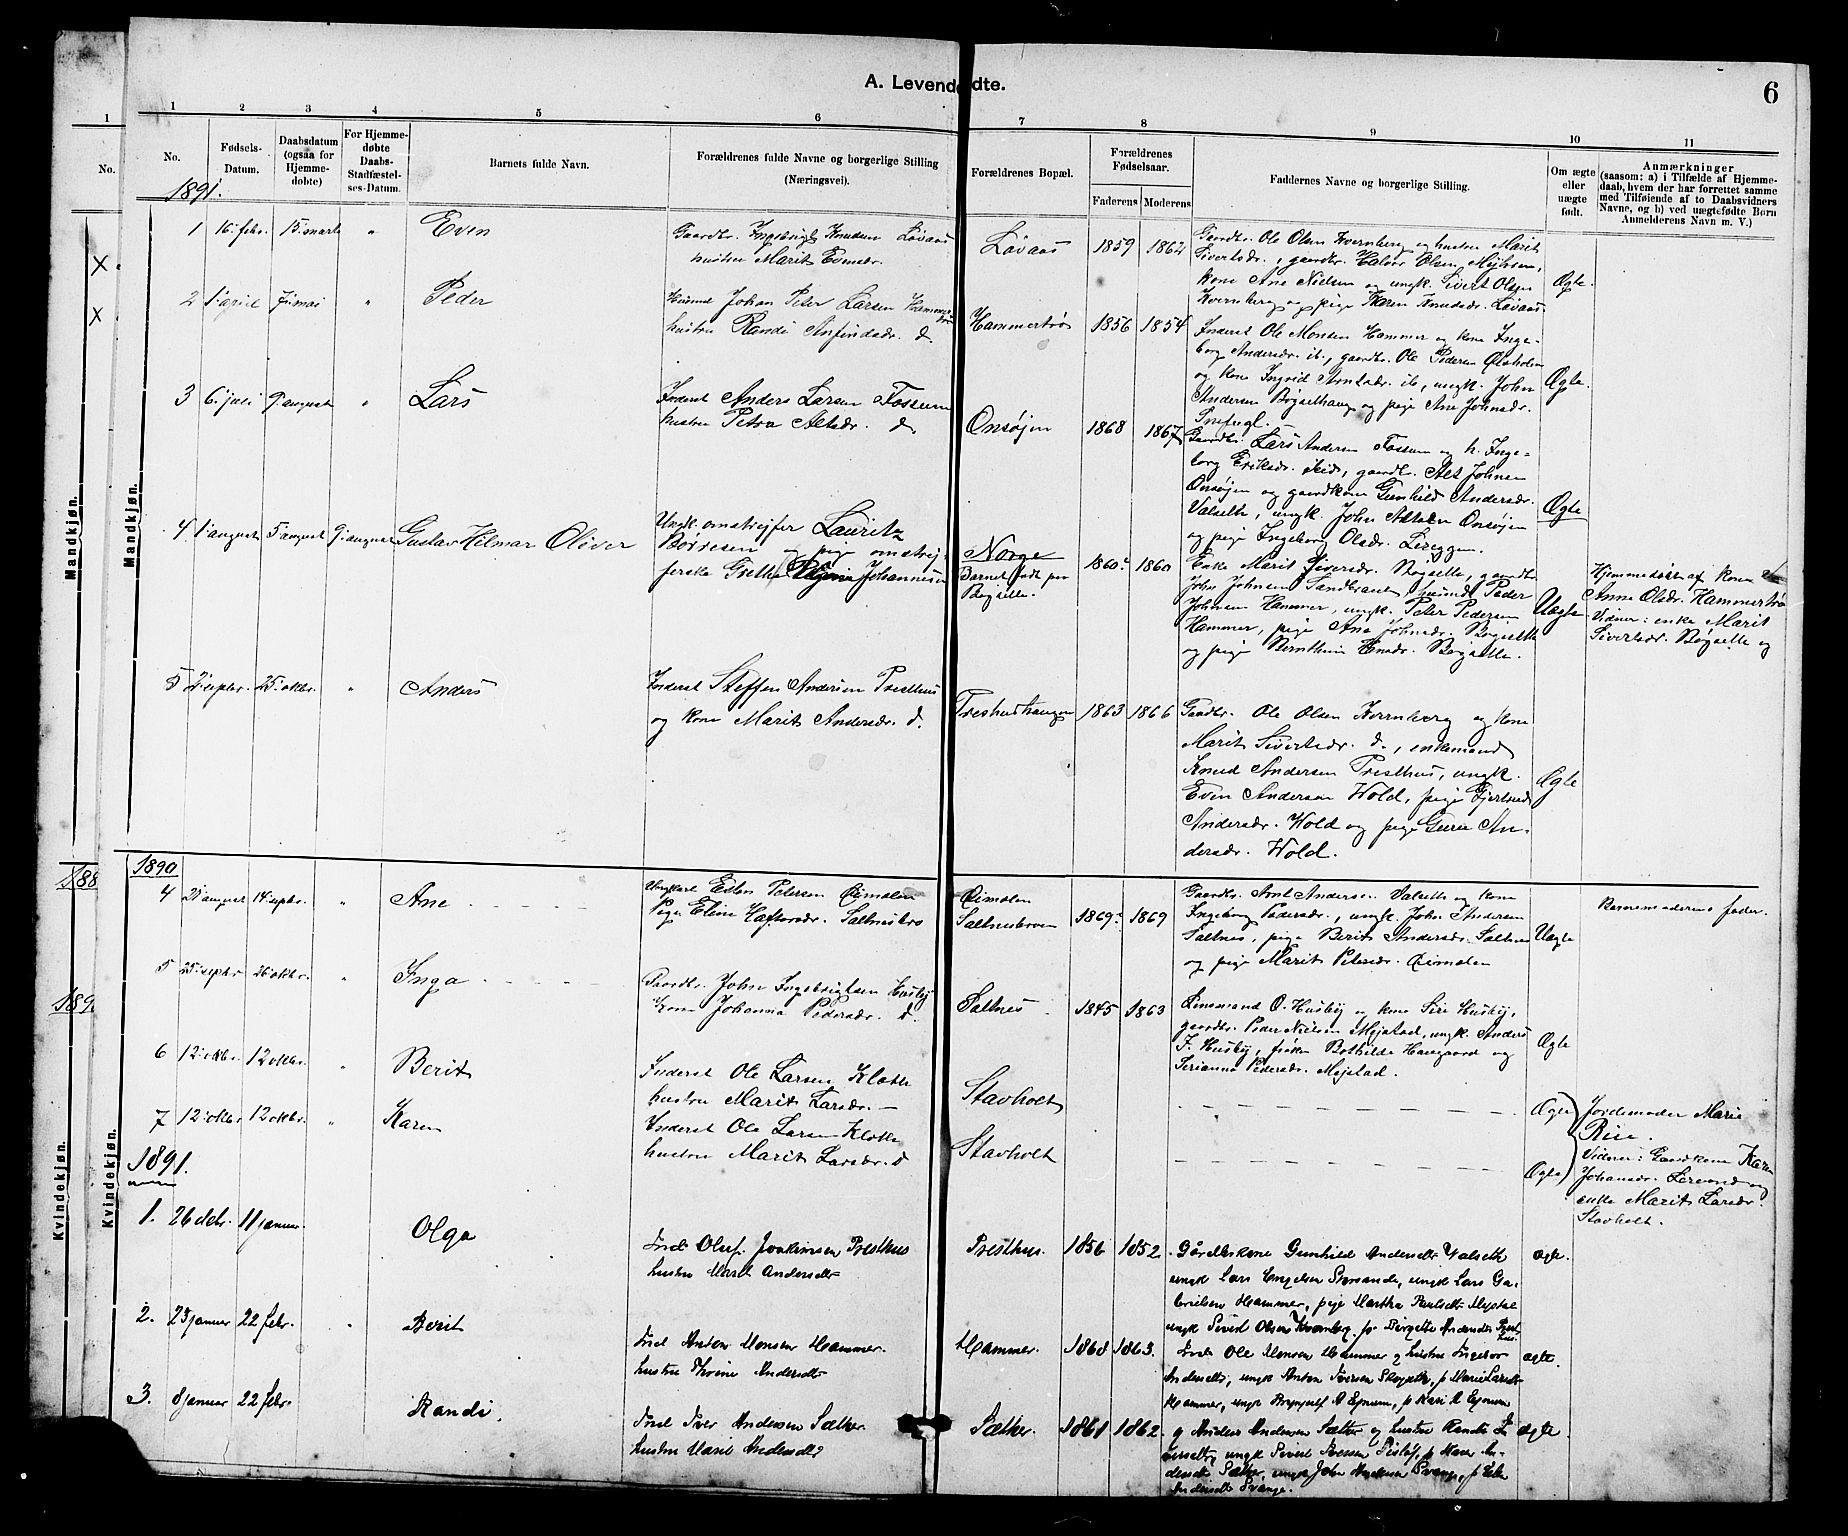 A. Levendefødte.
6
1 2 3 4 5 6 7 8 9 10 11
No.
Fødsels-
Datum.
Daabsdatum
(ogsaa for
Hjemme-
døbte)
For Hjemme-
døbte
Daabs-
Stadfæstel-
ses-Datum.
Barnets fulde Navn.
Forældrenes fulde Navne og borgerlige Stilling
(Næringsvei).
Forældrenes Bopæl.
Forældrenes
Fødselsaar.
Faderens Moderens
Faddernes Navne og borgerlige Stilling.
Om ægte
eller
uægte
født.
Anmærkninger
(saasom: a) i Tilfælde af Hjemme-
daab, hvem der har forrettet samme
med Tilføiende af to Daabsvidners
Navne, og b) ved uægtefødte Børn
Anmelderens Navn m. V.)
1
No.
Mandkjøn.
Mandkjøn.
1891.
1 16. febr. 15. marts " Even
Gaardbr. Ingebrigt Knudsen Løvaas
hustru Marit Evensdr.
Løvaas 1859 1862
Gaardbr. Ole Olsen Kvernberg og hustru Marit
Sivertsdr., gaardbr. Halvor Olsen
kone Ane Nielsen og ungk. Sivert Olsen
Kvernberg og pige Karen Knudsdr. Løvaas.
Ægte.
2 1. april 7. mai " Peder
Johan Peter Larsen Hammer
hustru Randi Arfindsdr. d.
Hammertrø 1856 1854
Inderst Ole Monsen Hammer og kone Inge-
borg Andersdr. ib., gaardbr. Ole Pedersen
og kone Ingrid Arntsdr. ib, ungk. John
Andersen Bøgselhaug og pige Ane Johnsdr.
Snefugl.
Ægte.
3 6. juli 9. august " Lars
Inderst Anders Larsen Fossum
hustru Petra Alsdr. d.
Onsøjen 1868 1867
Gaardbr. Lars Andersen Fossum og h. Inge-
borg Eriksdr. ibid., gaardbr. Als Johnsen
Onsøjen og gaardkone Gunhild Andersdr.
Valseth, ungk. John Alsen Onsøjen
og pige Ingeborg Olsdr. Lereggen.
Ægte
4 1. august 5. august 9. august Gustav Hilmar Oliver
Ungk. omstrejfer Lauritz
Børresen og pige omstrej-
ferske Grethe Johannesen
Norge
Barnet født paa
Bøgselle.
1860. 1860
Enke Marit Siversdr. Bøgselle, gaardbr.
John Johnsen Peder
Johnsen Hammer, ungk. Peter Pedersen
Hammer, pige Ane Johnsdr. Bøgselle
og pige Bernthine Bøgselle.
Uægte
Hjemmedøbt af kone
Anne Olsdr. Hammertrø
Vidner: enke Marit
Sivertsdr. Bøgselle og
5 2. septbr. 25. oktbr. " Anders
Inderst Steffen Andersen Presthus
og kone Marit Andersdr. d.
Presthushaugen 1863 1866
Gaardbr. Ole Olsen Kvernberg og kone
Marit Sivertsdr. d., enkemand
Knud Andersen Presthus, ungk.
Even Andersen Wold, pige Gjertrud
Andersdr. Wold og pige Guru An-
dersdr. Wold.
Ægte
188
189
Kvindekjøn.
Kvindekjøn.
1890
4 21. august 14. septbr. " Ane
Ungkarl Esten Petersen Qvimolen
Pige Eline Hafvorsdr. Saltnesbro
Qvimolen
Saltnesbroen
1869. 1869
Gaardbr. Arnt Andersen Valseth og kone
Ingeborg Pedersdr., ungk. John Andersen
Saltnes, pige Berit Andersdr. Saltnes
og pige Marit Petersdr. Qvimolen
Uægte
Barnemoderens fader.
5 25. septbr. 26. oktbr. " Inga
Gaardbr. John Ingebrigtsen Husby
Kone Johanna Pedersdr. d.
Saltnes 1845 1863
Lensmand O. Husby og kone Siri Husby,
gaardbr. Peder Nielsen Mejstad, ungk. Anders
J. Husby, frøken Bothilde Haugaard og
Serianna Pedersdr. Mejstad.
Ægte
6 12. oktbr. 12 oktbr. " Berit
Inderst Ole Larsen Kløtte
hustru Marit Larsdr. —
Stavholt
Ægte
7 12. oktbr 12 oktbr. " Karen
Inderst Ole Larsen Kløtte
hustru Marit Larsdr. d
Stavholt
Ægte
Jordemoder Marie
Rise.
Vidner: Gaardkone Karen
Johansdr. og
enke Marit Larsdr.
Stavholt.
1891.
1. 26 dcbr. 11 januar. Olga
Ind. Oluf Joakimsen Presthus
hustru Marit Andersdtr
Presthus. 1856 1852.
Gårdbrskone Gunhild Andersdtr Valseth
ungk Lars Engelsen Storsande, ungk Lars Ga-
brielsen Hammer, pige Martha Paulsdtr Mejstad
ungk Sivert Olsen Kvernberg, p. Birgitte Andersdtr Prest-
hus.
ægte.
2. 25 januar 22 febr. " Berit
Ind Anton Monsen Hammer.
hustru Andersdtr
Hammer. 1868 1863.
Ind. Ole Monsen Hammer og hustru Ingebor
Andersdtr, ungk Anton Iversen p Marie Larsdtr
Hammer, ungk Brynjulf A Eynum, p Kari A Eynum
ægte.
3. 8 januar 22 febr. Randi.
Ind Iver Andersen Sæther.
hustru Marit Andersdtr
Sæther. 1861 1862.
g Anders Andersen Sæther og hustru Randi I-
versdtr, ungk Sivert Iversen p Karen An-
dersdtr Sæther, ungk John Andersen Svange, p
Andersdtr Svange.
ægte.